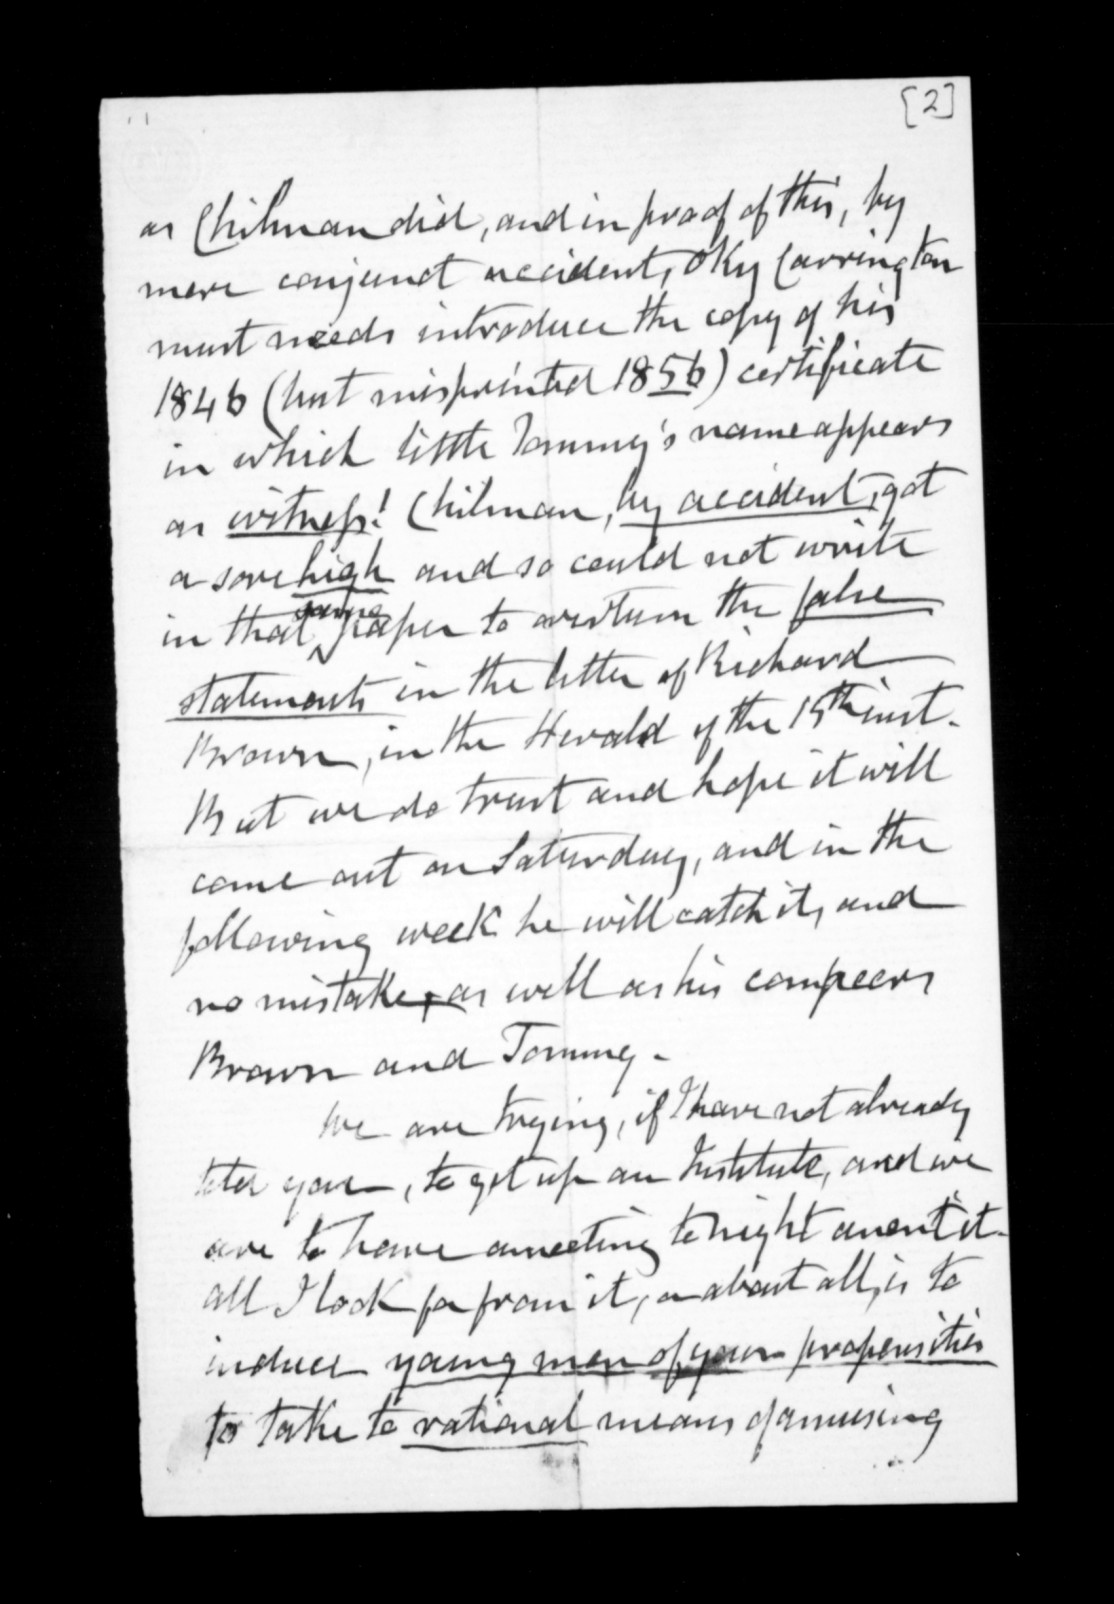 [2]
as Chilman did, and in proof of this, by
mere conjunct accident, Oky Carrington
must needs introduce the copy of his
1846 (but misprinted 1856) certificate
in which little Tommy's name appears
as witness! Chilman, by accident, got
a sore high and so could not write
in that same paper to overturn the false
statements in the letter of Richard
Brown, in the Herald of the 15th inst.
But we do trust and hope it will
come out on Saturday, and in the
following week he will catch it, and
no mistake, as well as his compeers
Brown and Tommy.
We are trying, if I have not already
told you, to get up an Institute, and we
are to have a meeting tonight anent it.
all I look for from it, or about all, is to
induce young men of your propensities
to take to rational means of amusing